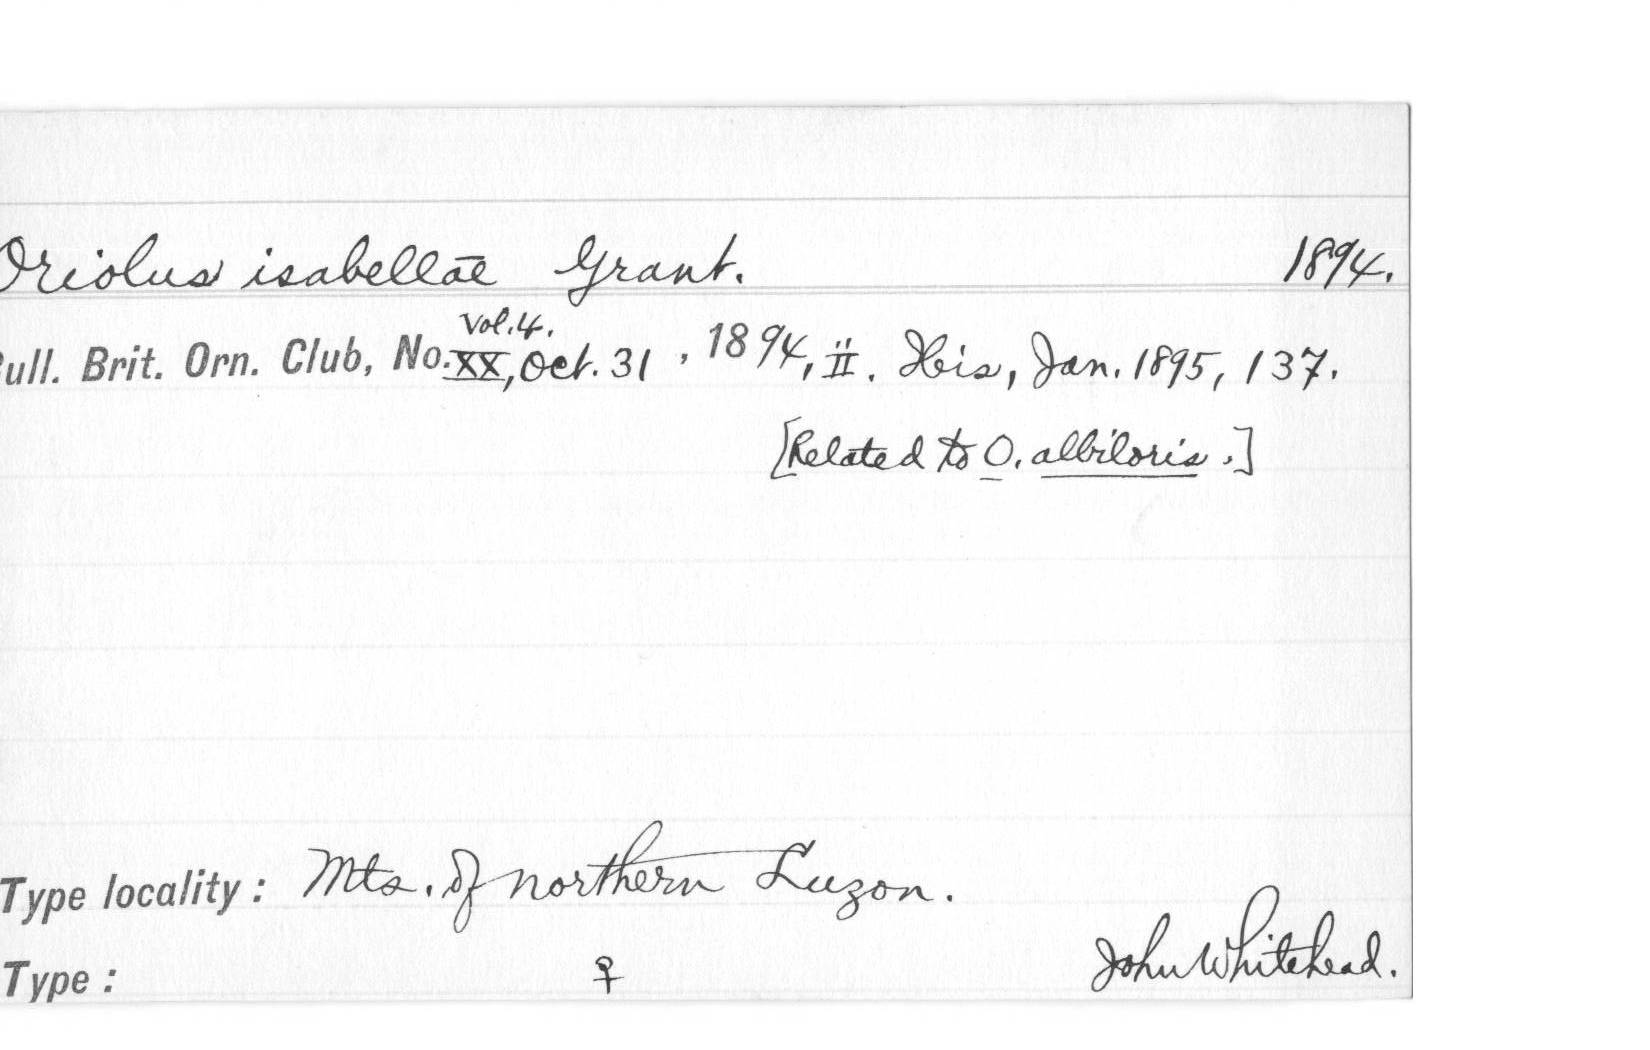 Oriolus isabellae Grant. 1894.
Vol. 4.
Bull. Brit. Orn. Club, No. XX, Oct. 31, 1894, ii. Ibis, Jan. 1895, 137.
[Related to O. albiloris.]
Type locality: Mts. of northern Luzon.
Type: ♀ John Whitehead.